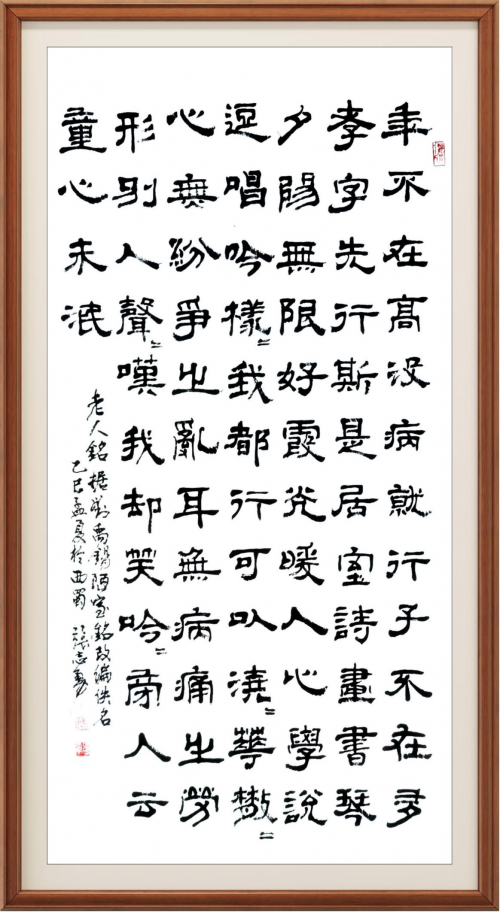 年不在高没病就行子不在多
孝字先行斯是居室詩畫書琴
夕陽無限好霞光暖人心學説
逗唱吟樣〻我都行可以澆〻華散〻
心無紛爭之亂耳無病痛之勞
形别人聲〻嘆我却笑吟〻旁人云
童心未泯
老人銘據劉禹錫陋室銘改編佚名
乙巳孟夏於西蜀 張志